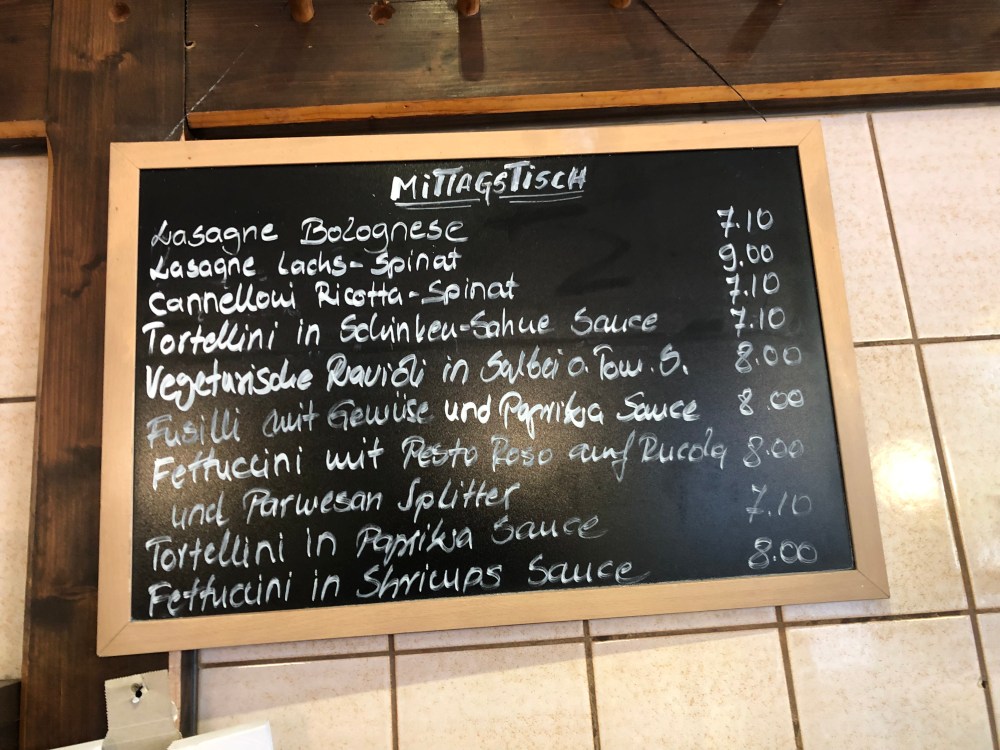 MiTTAGSTiSCH
Lasagne Bolognese 7.10
Lasagne Lachs-Spinat 9.00
Cannelloni Ricotta-Spinat 7.10
Tortellini in Schinken-Sahne Sauce 7.10
Vegetarische Ravioli in Salbei o. Tom. S. 8.00
Fusilli mit Gemüse und Paprika Sauce 8.00
Fettuccini mit Pesto Roso auf Rucola 8.00
und Parmesan Splitter
Tortellini in Paprika Sauce 7.10
Fettuccini in Shrimps Sauce 8.00